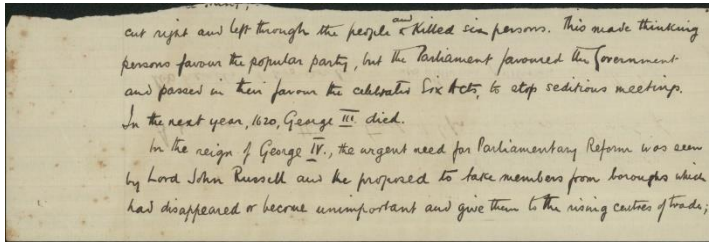 cut right and left through the people and killed six persons. This made thinking
persons favour the popular party, but the Parliament favoured the Government
and passed in their favour the celebrated Six Acts, to stop seditious meetings.
In the next year, 1820, George III died.
In the reign of George IV., the urgent need for Parliamentary Reform was seen
by Lord John Russell and he proposed to take members from boroughs which
had disappeared or become unimportant and give them to the rising centres of trade;